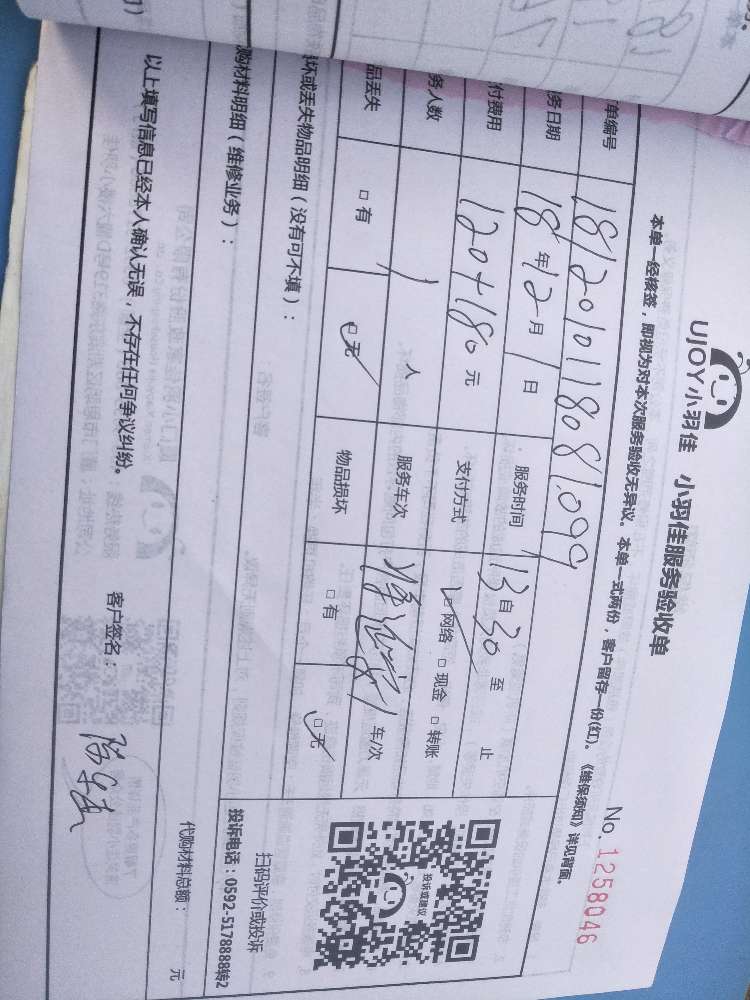 UJOY小羽佳 小羽佳服务验收单
No. 1258046
本单一经核签，即视为对本次服务验收无异议。本单一式两份，客户留存一份(红)。《维保须知》详见背面。
单编号 181201011808 1099
务日期 18年12月1日 服务时间 13自30至 止
付费用 120+180元 支付方式 网络 □现金 □转账
务人数 1人 服务车次 1车/次
品丢失 □有 □无 物品损坏 □有 □无
坏或丢失物品明细（没有可不填）：
扫码评价或投诉
投诉电话：0592-5178888转2
投诉或建议
购材料明细（维修业务）：
代购材料总额： 元
以上填写信息已经本人确认无误，不存在任何争议纠纷。 客户签名：